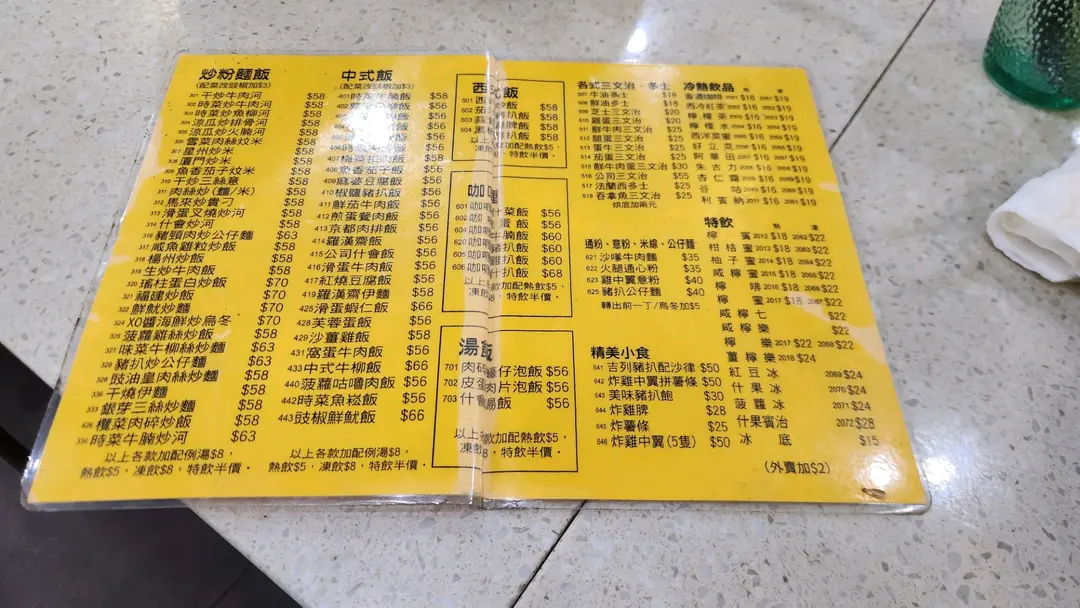 炒粉麵飯
(配菜改豉椒加$3)
301 干炒牛肉河 $58
302 時菜炒牛肉河 $58
303 時菜炒魚柳河 $58
304 涼瓜炒排骨河 $58
305 涼瓜炒火腩河 $58
306 雪菜肉絲炆米 $58
307 星州炒米 $58
308 廈門炒米 $58
309 魚香茄子炆米 $58
310 干炒三絲意 $58
311 肉絲炒(麵/米) $58
312 馬來炒貴刁 $58
313 滑蛋叉燒炒河 $58
314 什會炒河 $58
316 豬頸肉炒公仔麵 $63
317 咸魚雞粒炒飯 $58
318 楊州炒飯 $58
319 生炒牛肉飯 $58
320 瑤柱蛋白炒飯 $70
321 福建炒飯 $70
322 鮮魷炒麵 $58
324 XO醬海鮮炒烏冬 $70
326 菠蘿雞絲炒飯 $58
327 味菜牛柳絲炒麵 $63
328 豬扒炒公仔麵 $63
329 豉油皇肉絲炒麵 $58
330 干燒伊麵 $58
333 銀芽三絲炒麵 $58
426 欖菜肉碎炒飯 $58
334 時菜牛腩炒河 $63
以上各款加配例湯$8，
熱飲$5，凍飲$8，特飲半價。
中式飯
(配菜改豉椒加$3)
401 時菜牛腩飯 $58
402 $58
407 梅菜扣肉飯
408 魚香茄子飯 $56
409 麻婆豆腐飯 $56
410 椒鹽豬扒飯 $56
411 鮮茄牛肉飯 $56
412 煎蛋餐肉飯 $56
413 京都肉排飯 $56
414 羅漢齋飯 $56
415 公司什會飯 $56
416 滑蛋牛肉飯 $56
417 紅燒豆腐飯 $56
419 羅漢齋伊麵 $58
425 滑蛋蝦仁飯 $66
428 芙蓉蛋飯 $56
429 沙薑雞飯 $58
431 窩蛋牛肉飯 $56
433 中式牛柳飯 $66
440 菠蘿咕嚕肉飯 $56
442 時菜魚崧飯 $56
443 豉椒鮮魷飯 $66
以上各款加配例湯$8，
熱飲$5，凍飲$8，特飲半價。
西式飯
501 西 炒飯 $58
502 茄 扒飯 $58
503 豬脾飯 $58
504 黑 扒飯 $58
以上 加配熱飲$5，
凍飲$8，特飲半價。
咖喱
601 咖 什菜飯 $56
602 咖 蛋飯 $56
604 咖 牛腩飯 $60
620 咖 豬扒飯 $60
605 咖 雞扒飯 $60
606 咖 什扒飯 $68
以上 加配熱飲$5，
凍飲$8，特飲半價。
湯飯
701 肉碎 仔泡飯 $56
702 皮蛋 肉片泡飯 $56
703 什會 湯飯 $56
以上 款加配熱飲$5，
凍飲$8，特飲半價。
各式三文治．多士
507 牛油多士 $16
508 鮮油多士 $18
509 芝士三文治 $20
510 雞蛋三文治 $20
511 鮮牛肉三文治 $25
512 腿蛋三文治 $25
513 蛋牛三文治 $25
514 茄蛋三文治 $25
515 鮮牛肉蛋三文治 $30
516 公司三文治 $55
517 法蘭西多士 $25
518 吞拿魚三文治 $25
烘底加兩元
通粉．意粉．米線．公仔麵
621 沙嗲牛肉麵 $35
622 火腿通心粉 $35
623 雞中翼意粉 $40
625 豬扒公仔麵 $40
轉出前一丁/烏冬加$5
精美小食
641 吉列豬扒配沙律 $50
642 炸雞中翼拼薯條 $50
643 美味豬扒飽 $30
644 炸雞脾 $28
645 炸薯條 $25
646 炸雞中翼(5隻) $50
冷熱飲品 熱 凍
香濃咖啡 2001 $16 2051 $19
西冷紅茶 2002 $16 2052 $19
檸檬茶 2003 $16 2053 $19
檸檬水 2004 $16 2054 $19
西洋菜蜜 2005 $16 2055 $19
好立克 2006 $16 2056 $19
阿華田 2007 $16 2057 $19
朱古力 2008 $16 2058 $19
杏仁霜 2009 $16 2059 $19
谷咕 2010 $16 2060 $19
利賓納 2011 $16 2061 $19
特飲 熱 凍
檸賓 2012 $18 2062 $22
柑桔蜜 2013 $18 2063 $22
柚子蜜 2014 $18 2064 $22
咸檸蜜 2015 $18 2065 $22
檸啡 2016 $18 2066 $22
檸蜜 2017 $18 2067 $22
咸檸七 $22
咸檸樂 $22
檸樂 2017 $22 2068 $22
薑檸樂 2018 $24
紅豆冰 2069 $24
什果冰 2070 $24
菠蘿冰 2071 $24
什果賓治 2072 $28
冰底 $15
(外賣加$2)